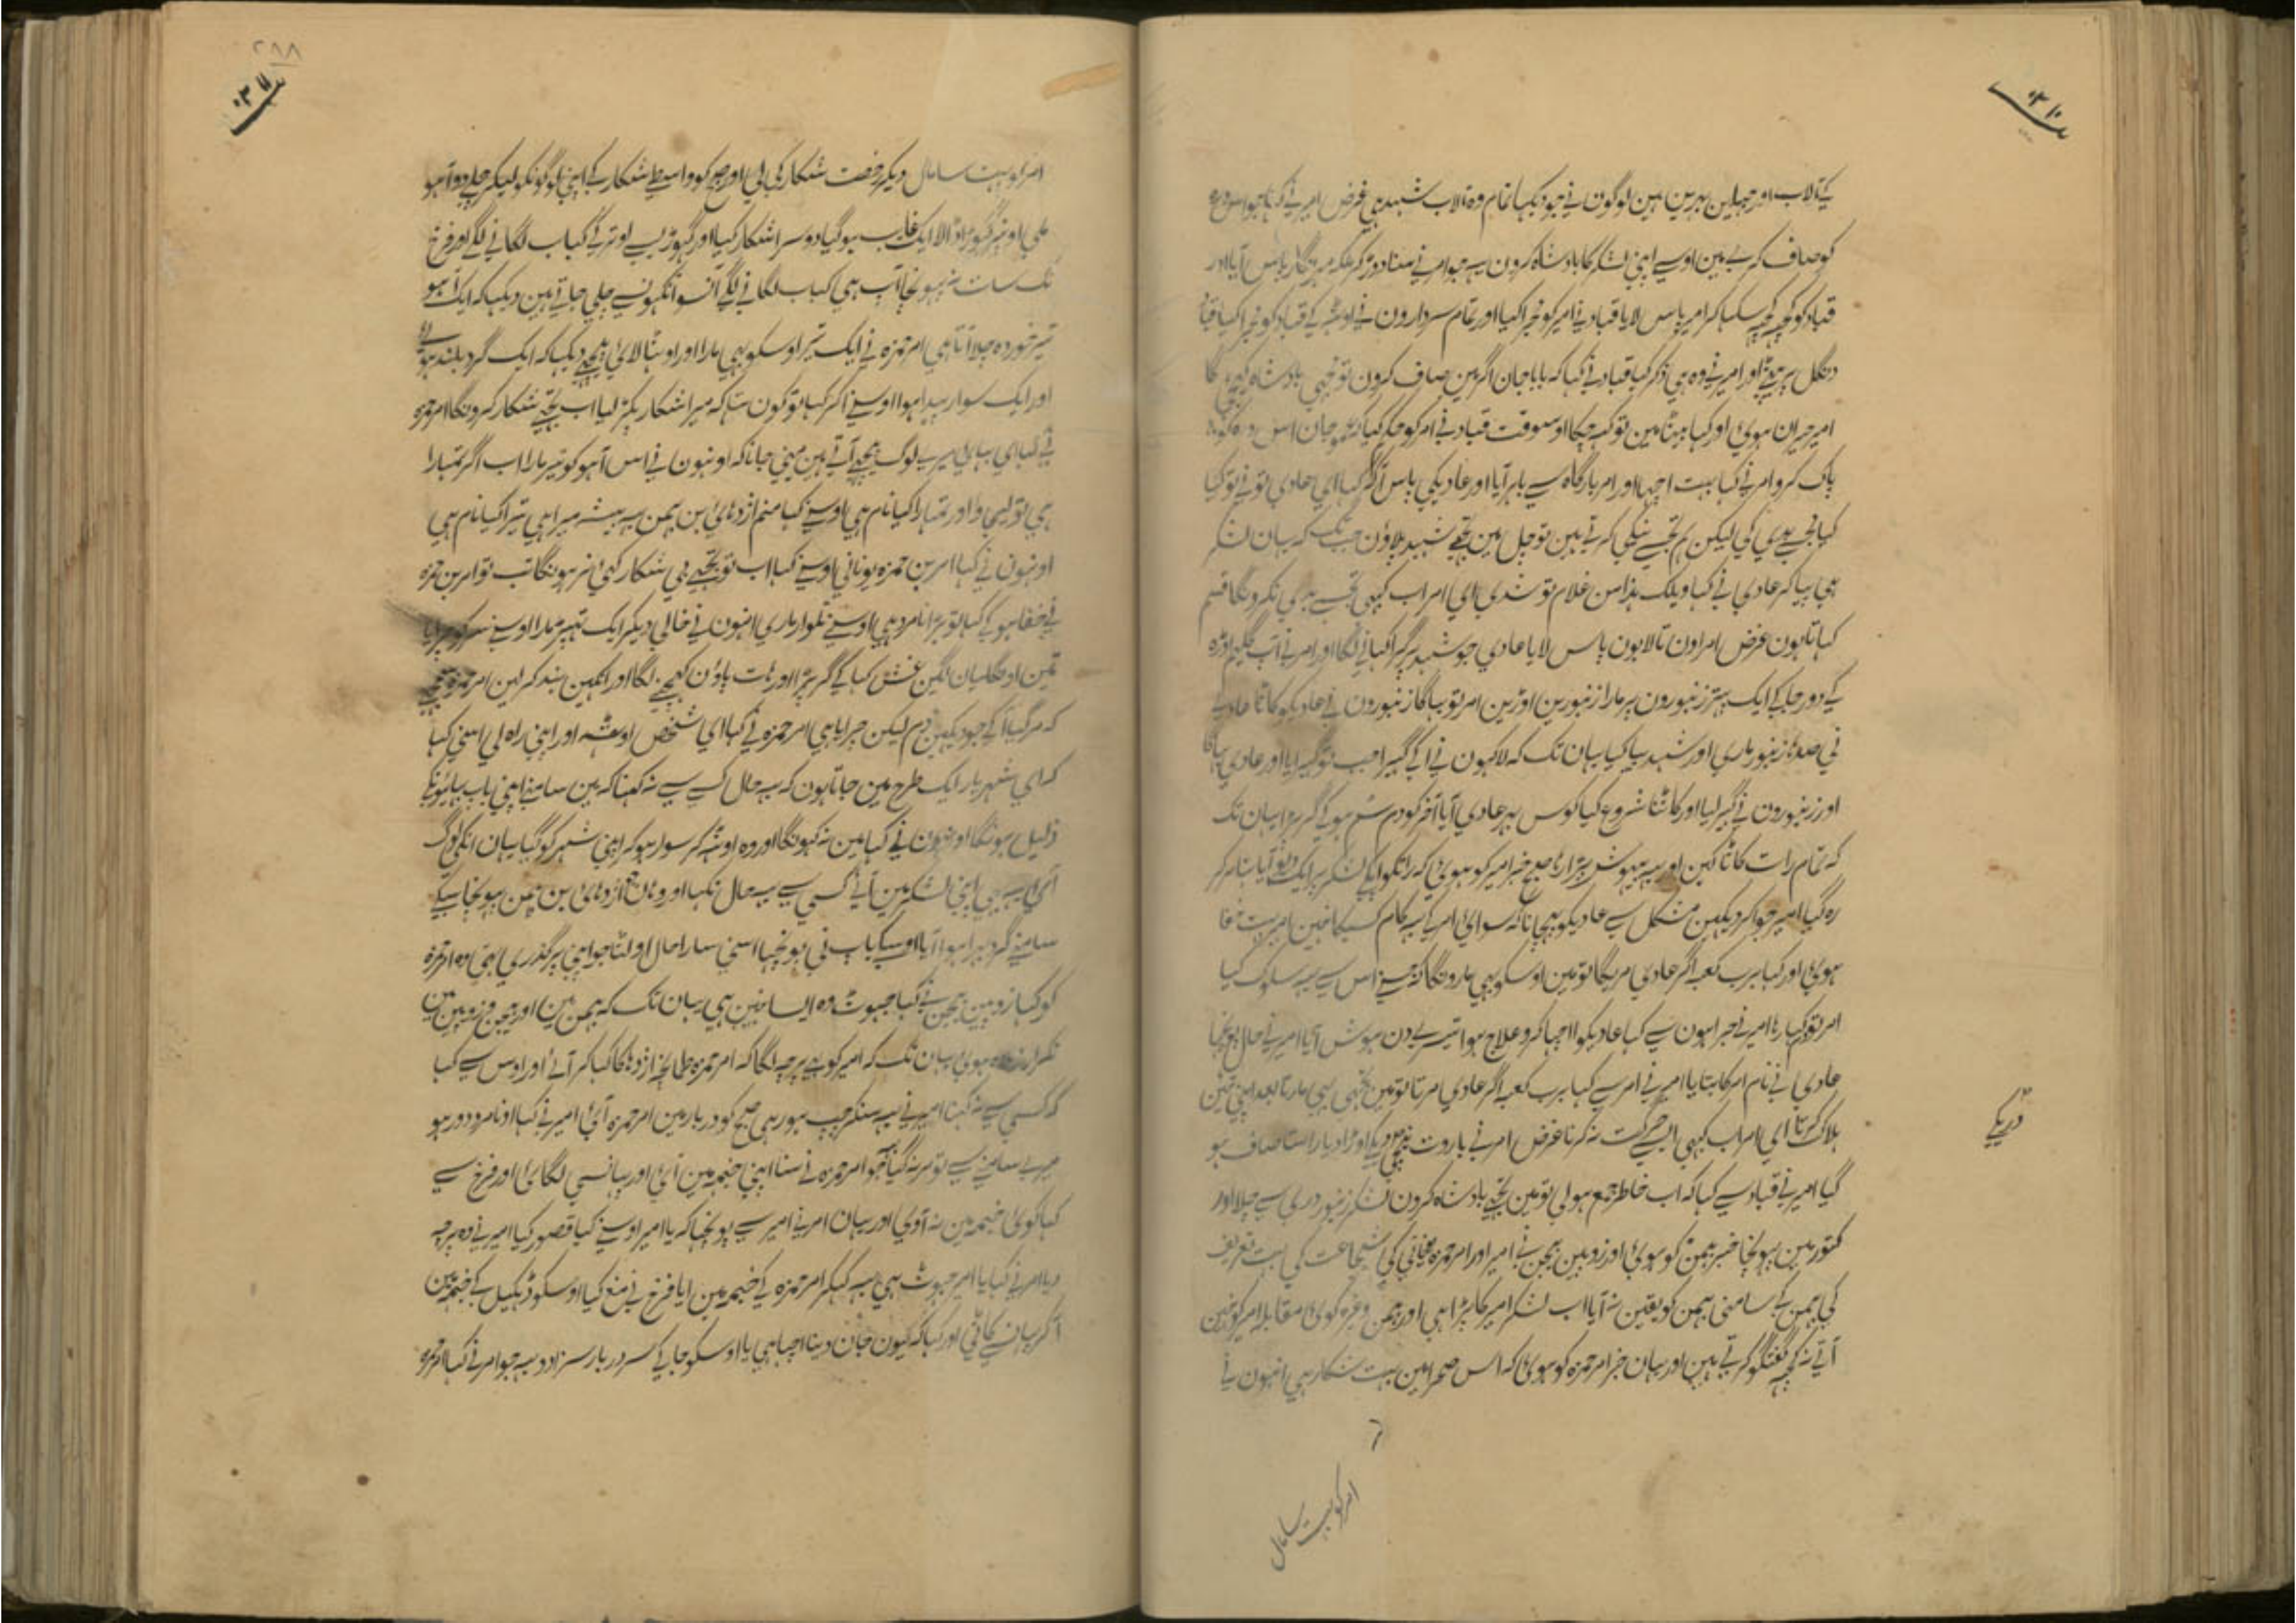 کے تالاب اور جہیلین بہرین ہین لوگون نے جو دیکہا تمام وہ تالاب شہد ہی غرض امیر نے کہا جو اس درہ
کو صاف کرے مین اوسے اپنی لشکر کا بادشاہ کرون یہ جو امر نے سنا دوڑ کر ملکہ مہر نگار پاس آیا اور
قباد کو کچہہ کچہہ سکہا کر امیر پاس لایا قباد نے امیر کو مجرا کیا اور تمام سردارون نے اوٹہہ کے قباد کو مجرا کیا قباد
دنگل پر بیٹہے اور امیر نے وہ ہی ذکر کیا قباد نے کہا کہ بابا جان اگر مین صاف کرون تو مجہی بادشاہ کیجئے گا
امیر حیران ہوئی اور کہا بیٹا مین تو کہہ چکا اوسوقت قباد نے امر کو حکم کیا کہ عموجان اس درہ کو
پاک کرو امر نے کہا بہت اچہا اور امر بارگاہ سے باہر آیا اور عادیکی پاس آ کر کہا ای عادی تو نے تو کیا
کیا مجہسے بدی کی لیکن ہم تجہسے نیکی کرتے ہین تو چل مین تجہے شہد پلاؤن جب تک کہ یہان لشکر
ہی پیا کر عادی نے کہا ویلک بذا من غلام تو شدی ای امر اب کبہی تجہسے بدی نکرونگا قسم
کہاتا ہون غرض امر اون تالابون پاس لایا عادی جو شہد پر گرا کہانے لگا اور امر نے آپ گلیم اوڑہ
کے دور جا کے ایک پتہر زنبورون پر مارا زنبورین اوڑین امر تو بہاگا زنبورون نے عادیکو کاٹا عادی
نے صدہا زنبور ماری اور شہد پیا کیا یہان تک کہ لاکہون نے آ کے گہیرا جب تو گہبرایا اور عادی بہاگا
اور زنبورون نے گہیر لیا اور کاٹنا شروع کیا کوس بہر عادی آیا آخر کو دم سُم ہو کے گر پڑا یہان تک
کہ تمام رات کاٹا کین اور یہ بیہوش پڑا رہا صبح خبر امیر کو ہوئی کہ راتکو آپکے لشکر پر ایک دیو آیا تہا مر کر
رہ گیا امیر جو آ کر دیکہین مشکل سے عادیکو پہچانا کہ سوای امر کے یہ کام کسیکا نہین امیر بہت خفا
ہوئی اور کہا برب کعبہ اگر عادی مریگا تو مین اوسکو بہی مارونگا کہ جسنے اس سے یہ سلوک کیا
امر تو دم کہا رہا امیر نے جراحون سے کہا عادیکو اچہا کرو علاج ہوا تیسرے دن ہوش آیا امیر نے حال پوچہا
عادی نے نام امر کا بتایا امیر نے امر سے کہا برب کعبہ اگر عادی مرتا تو مین تجہی بہی مارتا بعد اپنی تئین
ہلاک کرتا ای امر اب کبہی ایسی حرکت نہ کرنا غرض امر نے باروت بچہا کے اوڑا دیا راستا صاف ہو
گیا امیر نے قباد سے کہا کہ اب خاطر جمع ہو لی تو مین تجہے بادشاہ کرون لشکر زنبور دری سے چلا اور
کتور مین پہونچا خبر بہمن کو ہوئی اور زوبین بہمن نے امیر اور امر حمزہ یونانی کی شجاعت کی بہت تعریف
کی بہمن کے سامنی بہمن کو یقین نہ آیا اب لشکر امیر کا پڑا ہی اور بہمن وغیرہ کوئی مقابلہ امیر کو نہین
آتے نہ کچہہ گفتگو کرتے ہین اور یہان خبر امر حمزہ کو ہوئی کہ اس صحرا مین بہت شکار ہی انہون نے
امر کو بہت سا مال
امر کو بہت سا مال دیکر رخصت شکار کی لی اور صبح کو واسطے شکار کے اپنی لوگونکو لیکر چلے دو آہو
ملی اونپر گہوڑا ڈالا ایک غایب ہو گیا دوسرا شکار کیا اور گہوڑیسے اوتر کے کباب لگانے لگے اور فرخ
تک سات نہ پہونچا آپ ہی کباب لگانے لگے آنسو آنکہونسے چلی جاتے ہین دیکہا کہ ایک آہو
تیر خوردہ چلا آتا ہی امر حمزہ نے ایک تیر اوسکو بہی مارا اور اوٹہا لائی پیچہے دیکہا کہ ایک گرد بلند ہوئی
اور ایک سوار پیدا ہوا اوسنے آ کر کہا تو کون تہا کہ میرا شکار پکڑ لیا اب تجہے شکار کرونگا امر حمزہ
نے کہا ای بہائی میرے لوگ پیچہے آتے ہین مینی جانا کہ اونہون نے اس آہو کو تیر مارا اب اگر تمہارا
ہی تو لیجاؤ اور تمہارا کیا نام ہی اوسنے کہا منم اژدہای بن بہمن یہ بیشہ میرا ہی تیرا کیا نام ہی
اونہون نے کہا امر بن حمزہ یونانی اوسنے کہا اب تو تجہسے بی شکار کہئی نہ رہونگا تب تو امر بن حمزہ
نے خفا ہو کے کہا تو بڑا نامرد ہی اوسنے تلوار ماری انہون نے خالی دیکر ایک تہپڑ مارا اوسنے سر کو پہرایا
تین اونگلیان لگین غش کہا کے گر پڑا اور ہات پاؤن کہینچنے لگا اور آنکہین بند کر لین امر حمزہ سمجہے
کہ مر گیا آ کے جو دیکہین دم لیکن چرایا ہی امر حمزہ نے کہا ای شخص اوٹہہ اور اپنی راہ لی اسنی کہا
کہ ای شہریار ایک طرح مین جاتا ہون کہ یہ حال کسی سے نہ کہنا کہ مین سامنے اپنی باپ بہائیونکے
ذلیل ہونگا اونہون نے کہا مین نہ کہونگا اور وہ اوٹہہ کر سوار ہو کر اپنی شہر کو گیا یہان انکی لوگ
آئی یہ بہی اپنی لشکر مین آئے کسی سے یہ حال نکہا اور وہان جو اژدہای بن بہمن پہونچا باپکے
سامنے گرد بہرا ہوا آیا اوسکے باپ نی پونچہا اسنی سارا حال اولٹا جو اپنی پر گذری تہی وہ امر حمزہ
کو کہا زوبین بہمن نے کہا جہوٹ وہ ایسا نہین ہی یہان تک کہ بہمن مین اور زوبین مین
تکرار ہوئی یہان تک کہ امیر کو یہ پرچہ لگا کہ امر حمزہ طمانچہ اژدہا کا کہا کر آئے اور اوس سے کہا
کہ کسی سے نہ کہنا امیر نے یہ سنکر چپ ہو رہی صبح کو دربار مین امر حمزہ آئی امیر نے کہا او نامرد دور ہو
میرے سامنے سے تو مر نہ گیا جو امر حمزہ نے سنا اپنی خیمہ مین آئی اور پہانسی لگائی اور فرخ سے
کہا کوئی خیمہ مین نہ آوی اور یہان امر نے امیر سے پونچہا کہ یا امیر اوسنے کیا قصور کیا امیر نے وہ پرچہ
دیا امر نے کہا یا امیر جہوٹ ہی یہ کہکر امر حمزہ کے خیمہ مین آیا فرخ نے منع کیا اوسکو ڈہکیل کے خیمہ مین
آ کر پہانسے کاٹی اور کہا کہ کیون جان دینا اچہا ہی یا اوسکو جا کے سر دربار سزا دو یہ جو امر نے کہا امر حمزہ